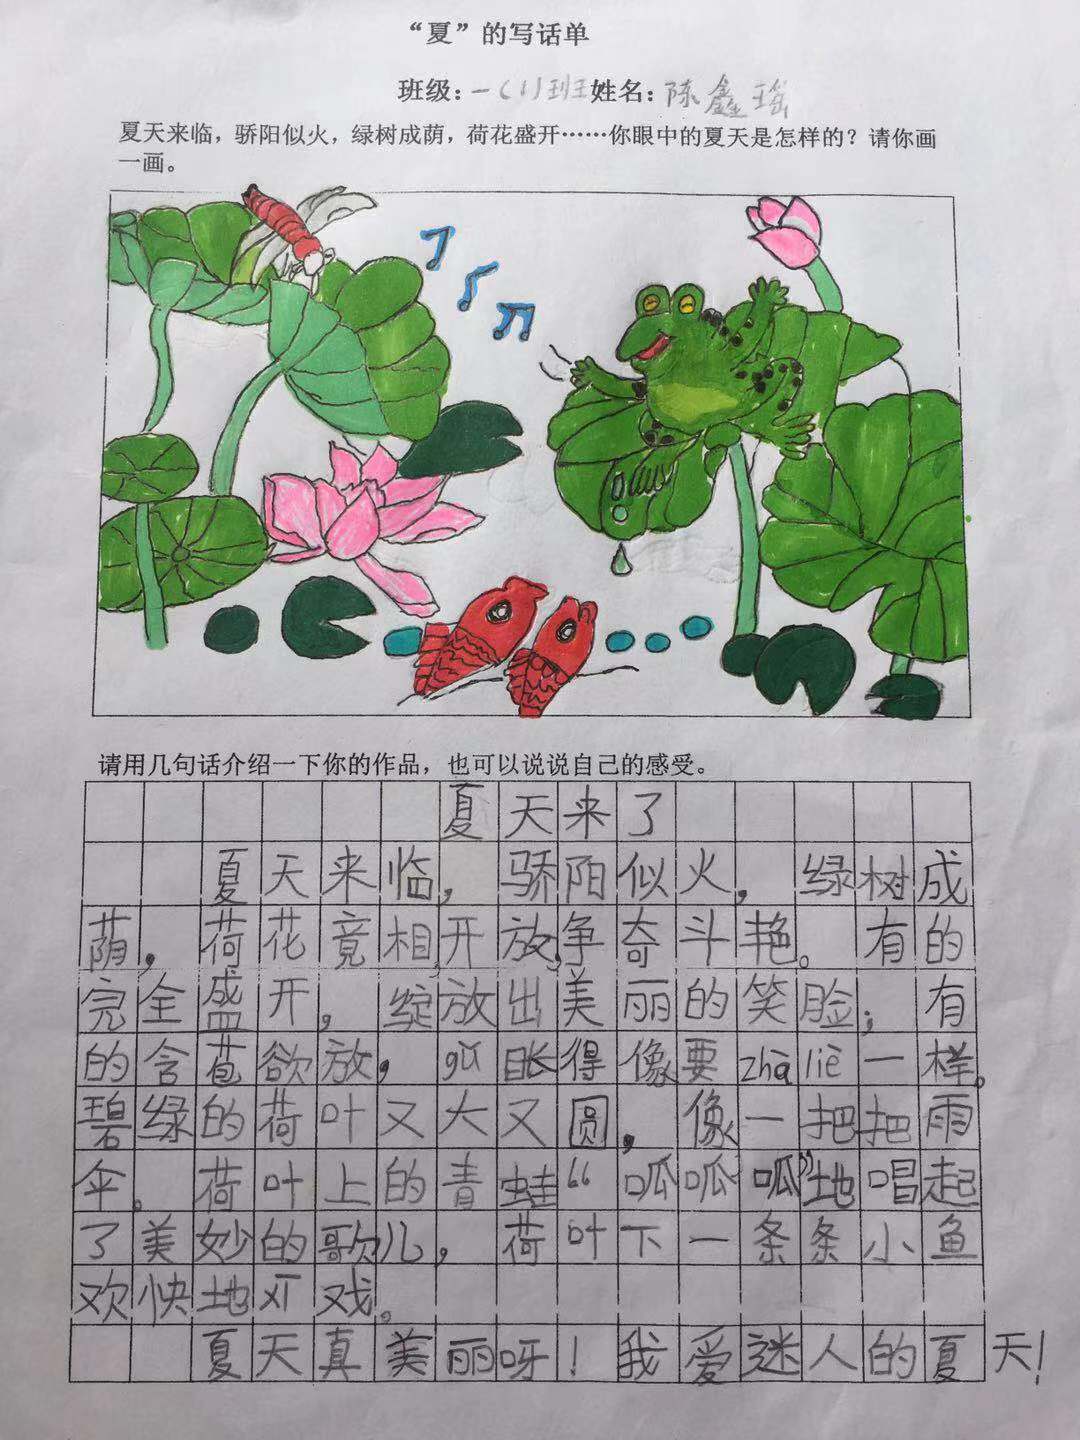 “夏”的写话单
班级：一（1）班姓名：陈鑫瑶
夏天来临，骄阳似火，绿树成荫，荷花盛开……你眼中的夏天是怎样的？请你画
一画。
请用几句话介绍一下你的作品，也可以说说自己的感受。
夏天来了
夏天来临，骄阳似火，绿树成
荫，荷花竟相开放，争奇斗艳。有的
完全盛开，绽放出美丽的笑脸；有
的含苞欲放，gǔ胀得像要zhà liè一样。
碧绿的荷叶又大又圆，像一把把雨
伞。荷叶上的青蛙“呱呱呱”地唱起
了美妙的歌儿，荷叶下一条条小鱼
欢快地 戏。
夏天真美丽呀！我爱迷人的夏天！